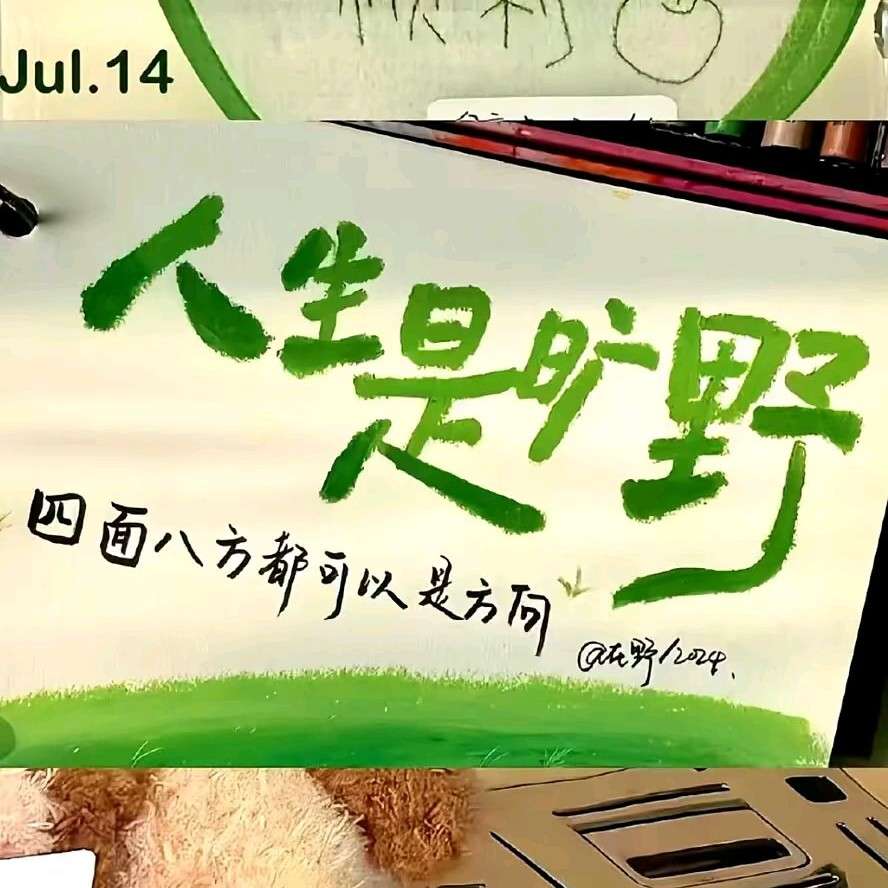 Jul.14
顺利
人生是旷野
四面八方都可以是方向
@在野/2024.